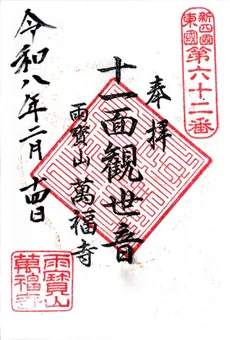 新四國
東國
第六十二番
奉拝
十一面観世音
雨寳山 萬福寺
令和八年二月廿四日
雨寳山
萬福寺